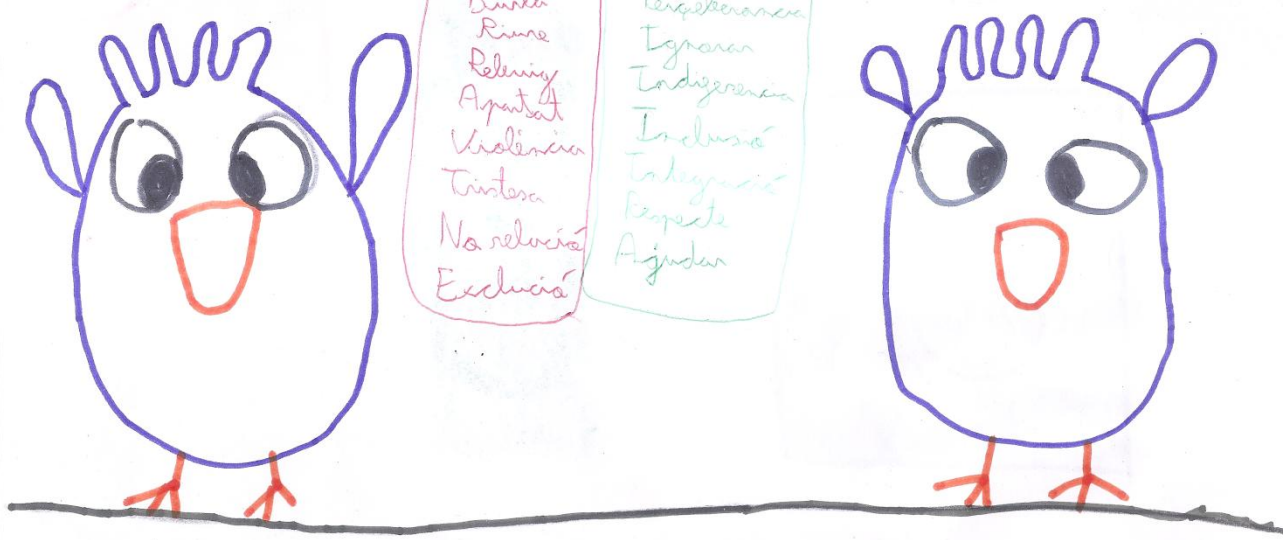 Riure
Rebuig
Apartat
Violència
Tristesa
No relació
Exclució
Ignorar
Indiferencia
Inclusió
Integració
Respecte
Ajudar